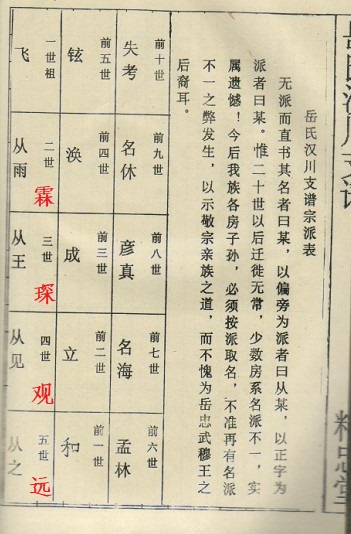 岳氏汉川支谱
精忠堂
岳氏汉川支谱宗派表
无派而直书其名者曰某，以偏旁为派者曰从某，以正字为
派者曰某。惟二十世以后迁徙无常，少数房系名派不一，实
属遗憾！今后我族各房子孙，必须按派取名，不准再有名派
不一之弊发生，以示敬宗亲族之道，而不愧为岳忠武穆王之
后裔耳。
前十世
失考
前九世
名休
前八世
彦真
前七世
名海
前六世
孟林
前五世
铉
前四世
涣
前三世
成
前二世
立
前一世
和
一世祖
飞
二世
从雨
霖
三世
从王
琛
四世
从见
观
五世
从之
远